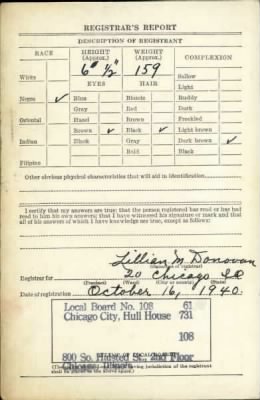 REGISTRAR'S REPORT
DESCRIPTION OF REGISTRANT
RACE
HEIGHT
(Approx.)
WEIGHT
(Approx.)
COMPLEXION
6' ½" 159
White
EYES HAIR
Sallow
Light
Negro ✓
Blue
Blonde
Ruddy
Gray
Red
Dark
Oriental
Hazel
Brown
Freckled
Brown ✓
Black ✓
Light brown
Indian
Black
Gray
Dark brown ✓
Bald
Black
Filipino
Other obvious physical characteristics that will aid in identification
I certify that my answers are true; that the person registered has read or has had
read to him his own answers; that I have witnessed his signature or mark and that
all of his answers of which I have knowledge are true, except as follows:
Lillian M Donovan
(Signature of registrar)
Registrar for 20 Chicago Ill
(Precinct) (Ward) (City or county) (State)
Date of registration October 16, 1940.
Local Board No. 108 61
Chicago City, Hull House 731
108
800 So. Halsted St., 2nd Floor
Chicago, Illinois
(STAMP OF LOCAL BOARD)
having jurisdiction of the registrant
shall be placed in the above space.)